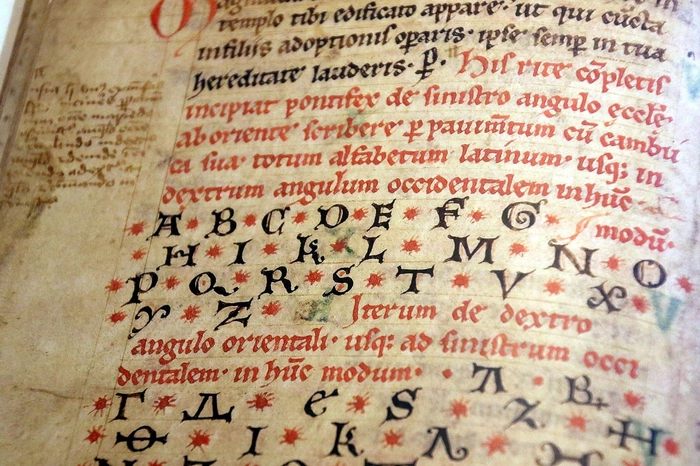 templo tibi edificato appare· ut qui cūcta
infiliis adoptionis oꝑaris· ipse semꝑ in tua
hereditate lauderis· P̄. His rite cōpletis
incipiat pontifex de sinistro angulo eccłe·
ab oriente scribere ꝑ pauim̄tum cū cambu
ca sua· totum alfabetum latinum· usq; in
dextrum angulum occidentalem in hūc
A B C D E F G modū·
H I K L M N O
P Q R S T V X
Y Z Iterum de dextro
angulo orientali· usq; ad sinistrum occi
dentalem· in hūc modum· A B
Γ Δ E S Z H
Θ I K Λ